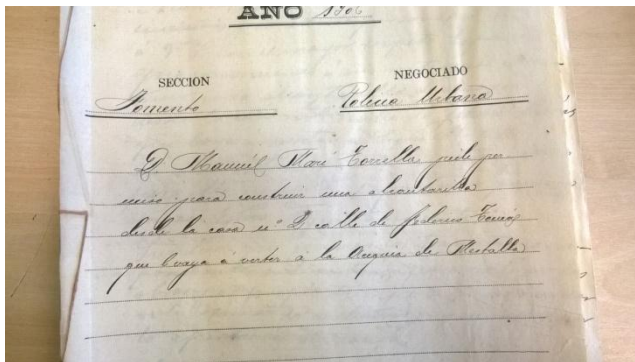 AÑO 1906
SECCION
Fomento
NEGOCIADO
Policia Urbana
D. Manuel Mari Torrella, pide per
miso para construir una alcantarilla
desde la casa nº 2 calle de
que vaya á verter á la Acequia de Mestalla